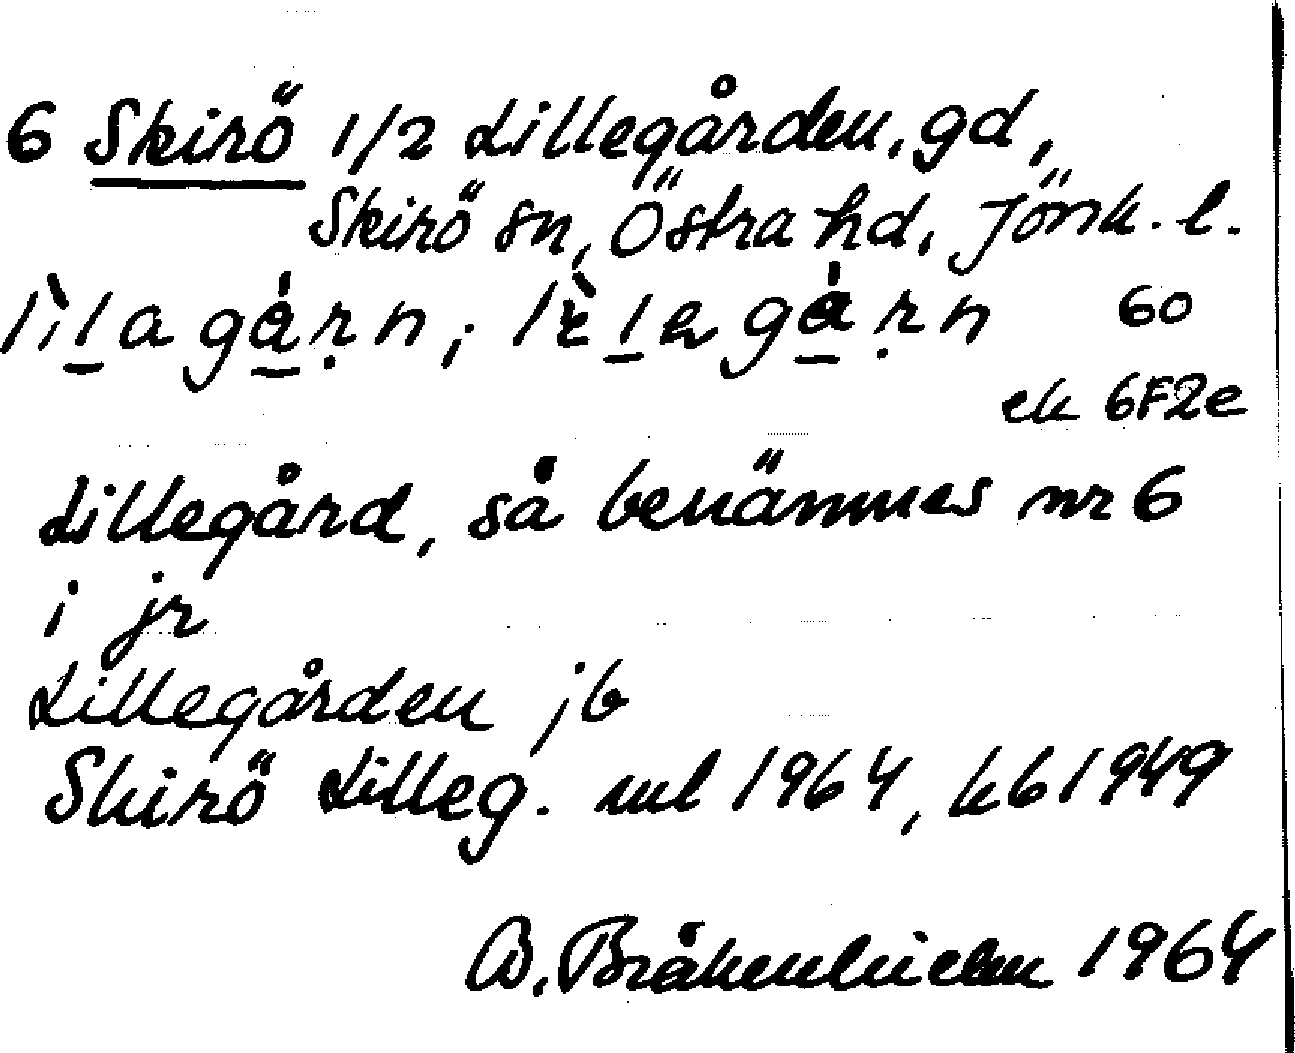 6 Skirö 1/2 Lillegården, gd,
Skirö sn, Östra hd, Jönk. l.
60
ek 6F2e
Lillegård, så benämnes nr 6
i jr
Lillegården jb
Skirö Lilleg. ml 1964, kb 1949
B. Bråkenhielm 1964